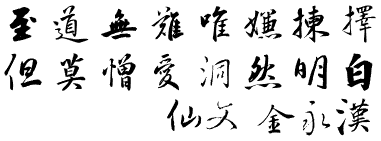 至道無難唯嫌揀擇
但莫憎愛洞然明白
仙文 金永漢